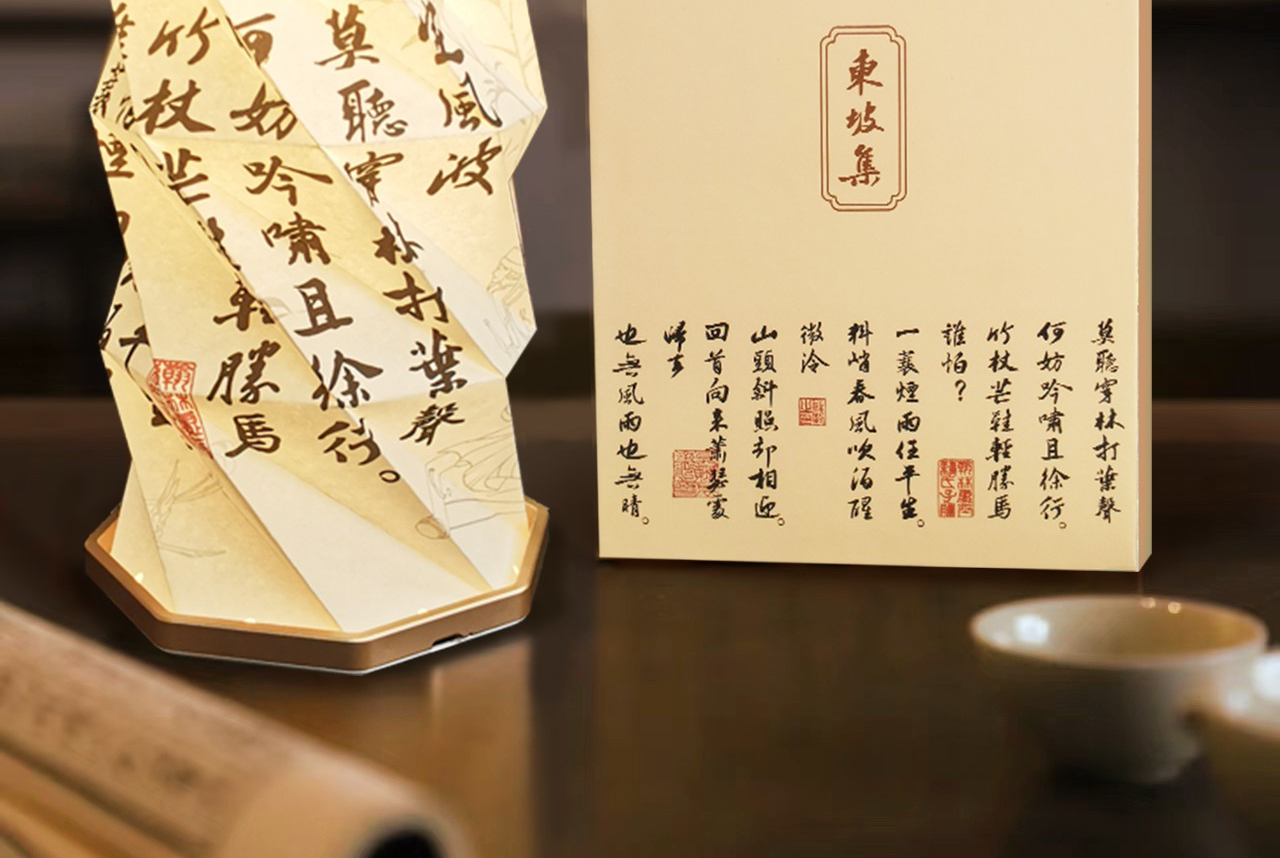 東坡集
莫聽穿林打葉聲
何妨吟嘯且徐行。
竹杖芒鞋輕勝馬
誰怕？
一蓑煙雨任平生。
料峭春風吹酒醒
微冷
山頭斜照却相迎。
回首向来蕭瑟處
歸去
也無風雨也無晴。
風波
莫聽穿林打葉聲
何妨吟嘯且徐行。
竹杖芒鞋輕勝馬